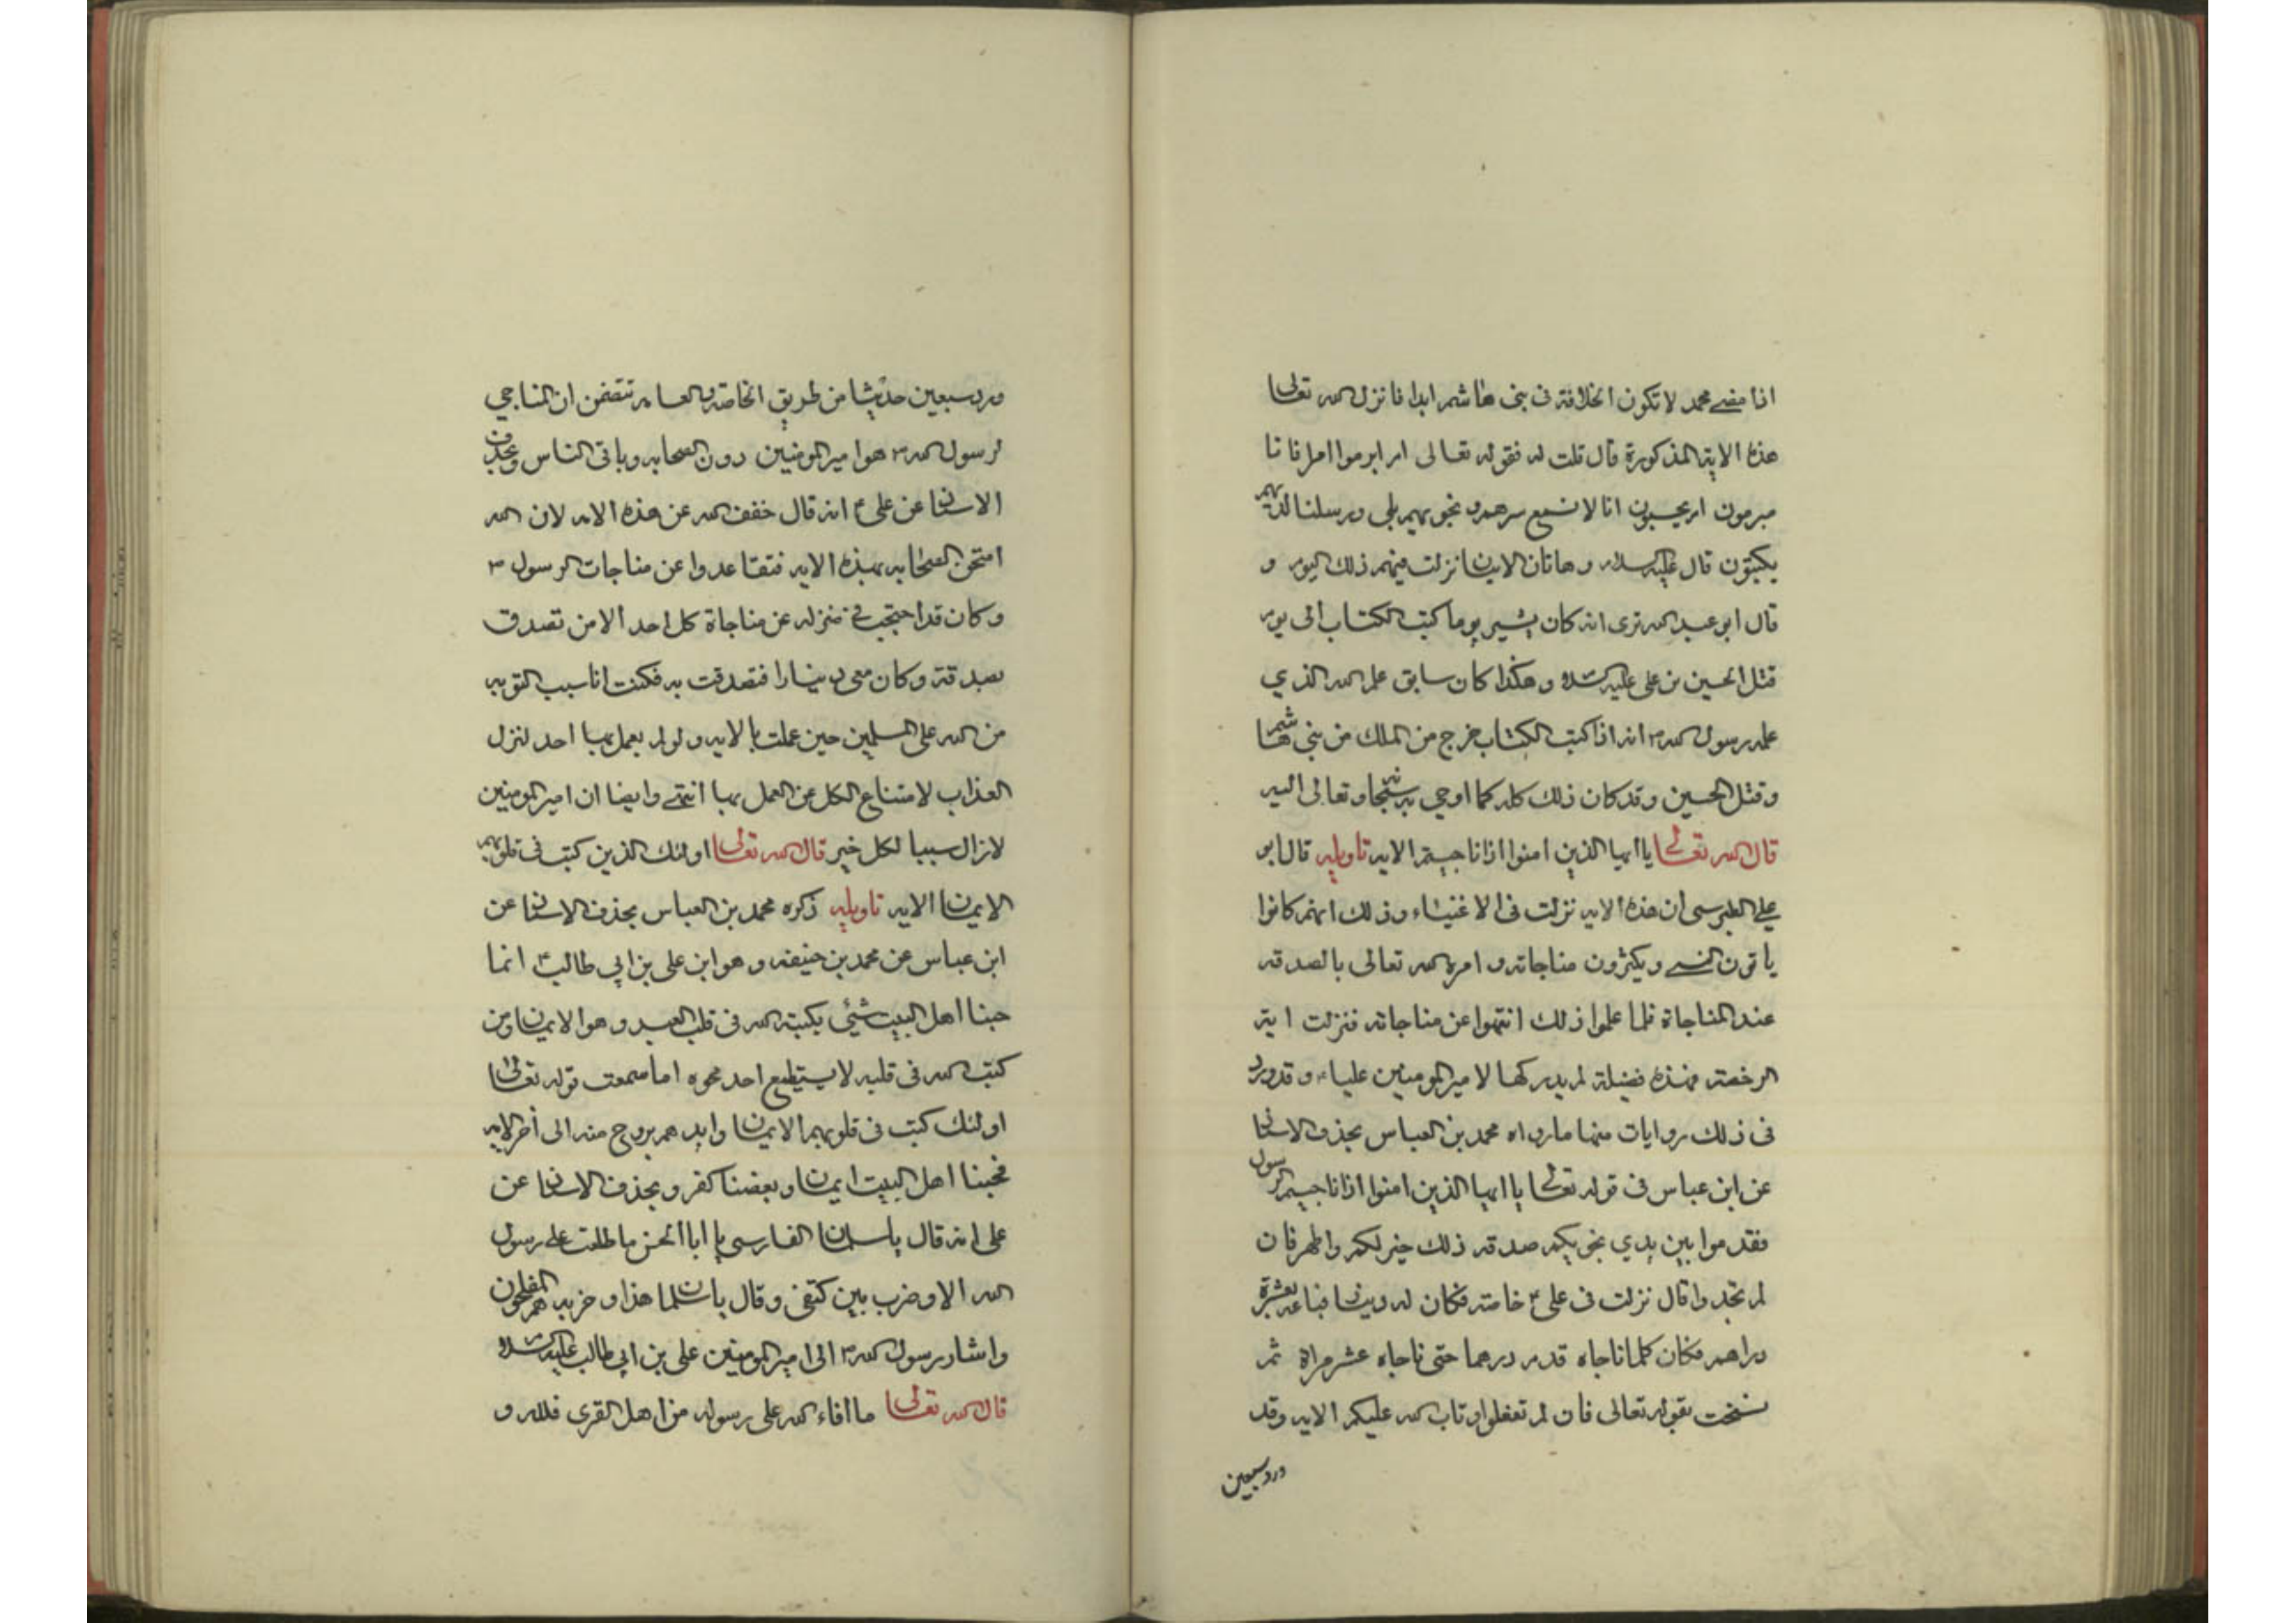 اذا مضى محمد لا تكون الخلافة فى بنى هاشم ابدا فانزل الله تعالى
هذه الاية المذكورة قال قلت له فقوله تعالى ام ابرموا امرا فانا
مبرمون ام يحسبون انا لا نسمع سرهم و نجويهم بلى و رسلنا لديهم
يكتبون قال عليه السلام و هاتان الايتان نزلت فيهم ذلك اليوم و
قال ابو عبد الله ترى انه كان يشبه يوما كتب الكتاب الى يوم
قتل الحسين بن على عليه السلام و هكذا كان سابق علم الله الذي
علمه رسول الله ص انه اذا كتب الكتاب خرج من الملك من بني هاشم
و قتل الحسين و قد كان ذلك كله كما اوحي به سبحانه و تعالى اليه
قال الله تعالى يا ايها الذين امنوا اذا ناجيتم الاية تاويله قال ابو
علي الطبرسى ان هذه الاية نزلت فى الاغنياء و ذلك انهم كانوا
ياتون النبى و يكثرون مناجاته و امره الله تعالى بالصدقة
عند المناجاة فلما علموا ذلك انتهوا عن مناجاته فنزلت اية
الرخصة فهذه فضيلة لم يدركها الا امير المومنين عليا ع و قد ورد
فى ذلك روايات منها ما رواه محمد بن العباس بحذف الاسناد
عن ابن عباس فى قوله تعالى يا ايها الذين امنوا اذا ناجيتم الرسول
فقدموا بين يدي نجويكم صدقة ذلك خير لكم و اطهر فان
لم تجدوا قال نزلت فى على ع خاصة فكان له دينار فباعه بعشرة
دراهم فكان كلما ناجاه قدم درهما حتى ناجاه عشر مراة ثم
نسخت بقوله تعالى فان لم تفعلوا و تاب الله عليكم الاية و قد
ورد سبعين
ورد سبعين حديثا من طريق الخاصة و العامه تتضمن ان المناجي
لرسول الله ص هو امير المومنين دون الصحابه و باقى الناس و بحذف
الاسناد عن على ع انه قال خفف الله عن هذه الامه لان الله
امتحن الصحابه بهذه الايه فتقاعدوا عن مناجات الرسول ص
و كان قد احتجب فى منزله عن مناجاة كل احد الا من تصدق
بصدقة و كان معى دينارا فتصدقت به فكنت انا سبب التوبه
من الله على المسلمين حين عملت بالايه و لو لم يعمل بها احد لنزل
العذاب لامتناع الكل عن العمل بها انتهى و ايضا ان امير المومنين
لازال سببا لكل خير قال الله تعالى اولئك الذين كتب فى قلوبهم
الايمان الايه تاويله ذكره محمد بن العباس بحذف الاسناد عن
ابن عباس عن محمد بن حنيفه و هو ابن على بن ابي طالب ع انما
حبنا اهل البيت شئى يكتبه الله فى قلب العبد و هو الايمان و من
كتب الله فى قلبه لا يستطيع احد محوه اما سمعت قوله تعالى
اولئك كتب فى قلوبهم الايمان و ايدهم بروح منه الى آخر الايه
فحبنا اهل البيت ايمان و بغضنا كفر و بحذف الاسناد عن
على انه قال يا سلمان الفارسى يا ابا الحسن ما طلعت على رسول
الله الا و ضرب بين كتفى و قال يا سلمان هذا و حزبه هم المفلحون
و اشار رسول الله ص الى امير المومنين على بن ابي طالب عليه السلام
قال الله تعالى ما افاء الله على رسوله من اهل القرى فلله و